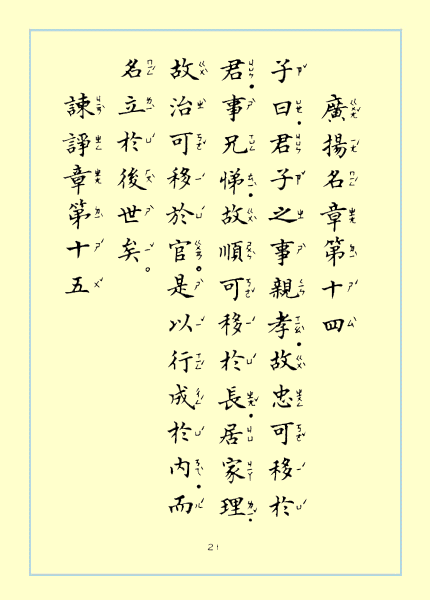 廣揚名章第十四
子曰．君子之事親孝．故忠可移於
君．事兄悌．故順可移於長．居家理．
故治可移於官。是以行成於內．而
名立於後世矣。
諫諍章第十五
21